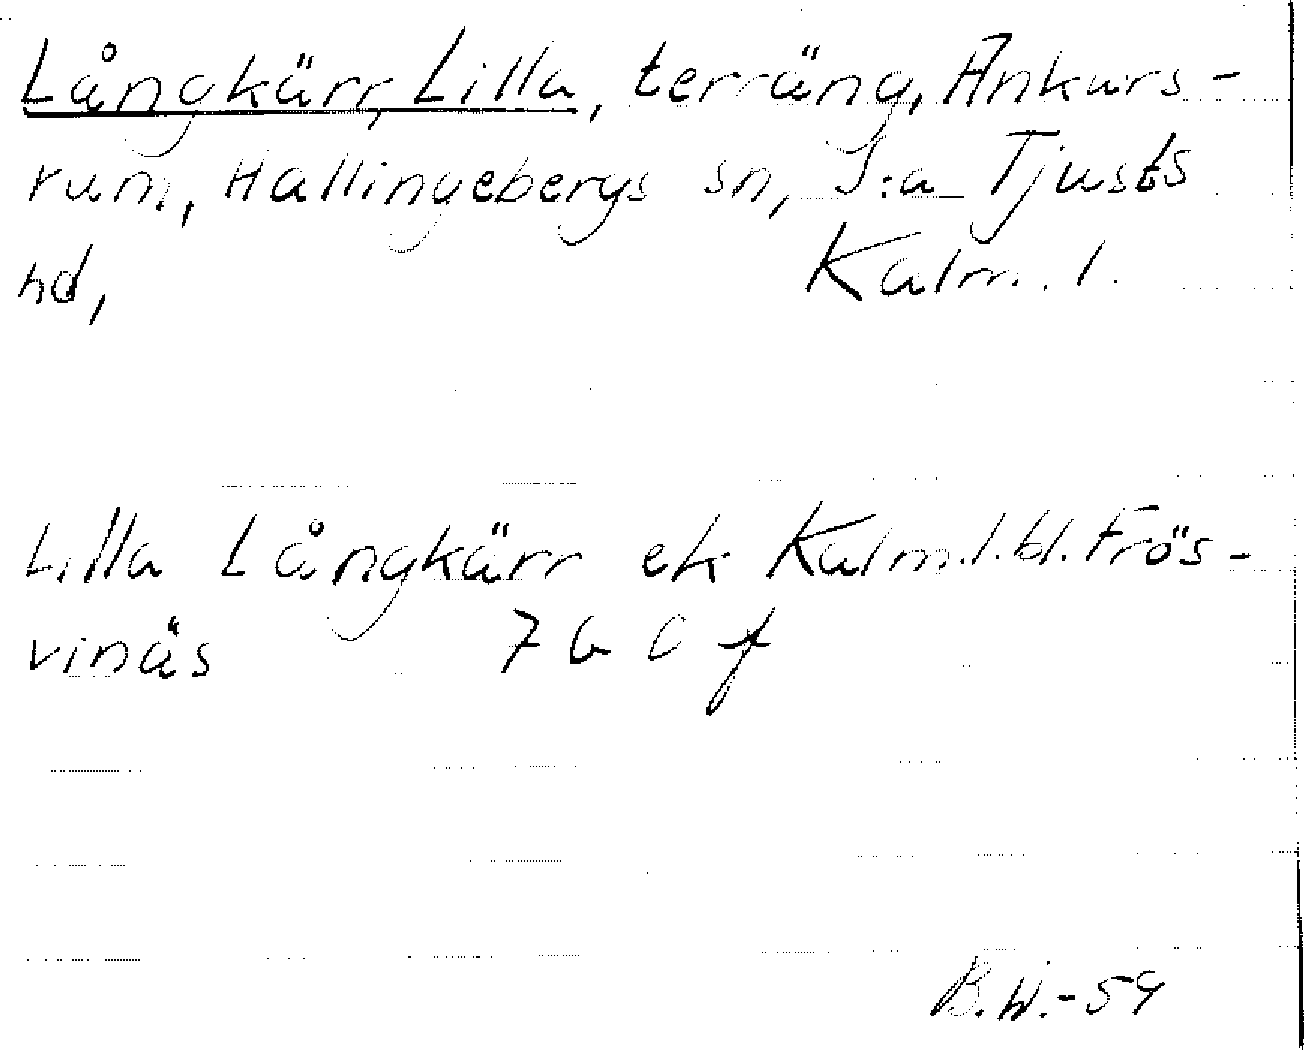 Långkärr, Lilla, terräng, Ankars-
rum, Hallingebergs sn, S:a Tjusts
hd, Kalm. l.
Lilla Långkärr ek Kalm.l.bl. Frös-
vinäs 7 G c f
B.W.-59